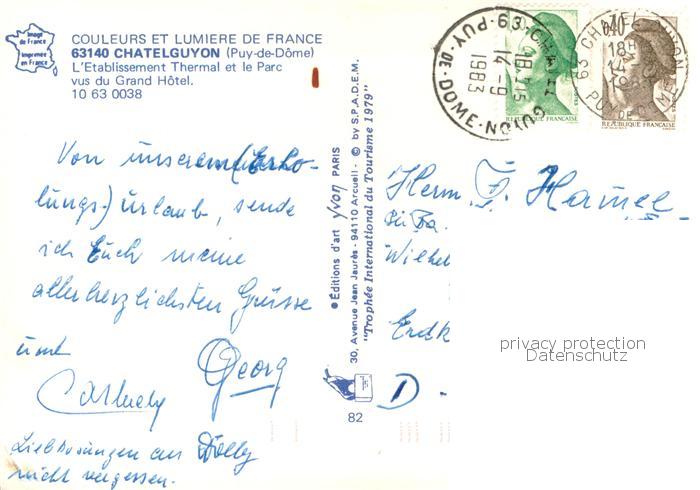 Image
de France
Imprimée
en France
COULEURS ET LUMIERE DE FRANCE
63140 CHATELGUYON (Puy-de-Dôme)
L'Etablissement Thermal et le Parc
vus du Grand Hôtel.
10 63 0038
Von unserem (Erho-
lungs-) urlaub, sende
ich Euch meine
allerherzlichsten Grüsse
und
Georg
Liebkosungen an Dolly
nicht vergessen.
● Éditions d'art yvon PARIS
30, Avenue Jean Jaurès - 94110 Arcueil - © by S.P.A.D.E.M.
"Trophée International du Tourisme 1979"
82
63 CHATEL GUYON
18H15
14-9
1983
PUY-DE-DOME
REPUBLIQUE FRANCAISE
0,40
63 CHATEL GUYON
18H
PUY DE DOME
REPUBLIQUE FRANCAISE
Herrn F. Hamel
Wilhel
D -
privacy protection
Datenschutz